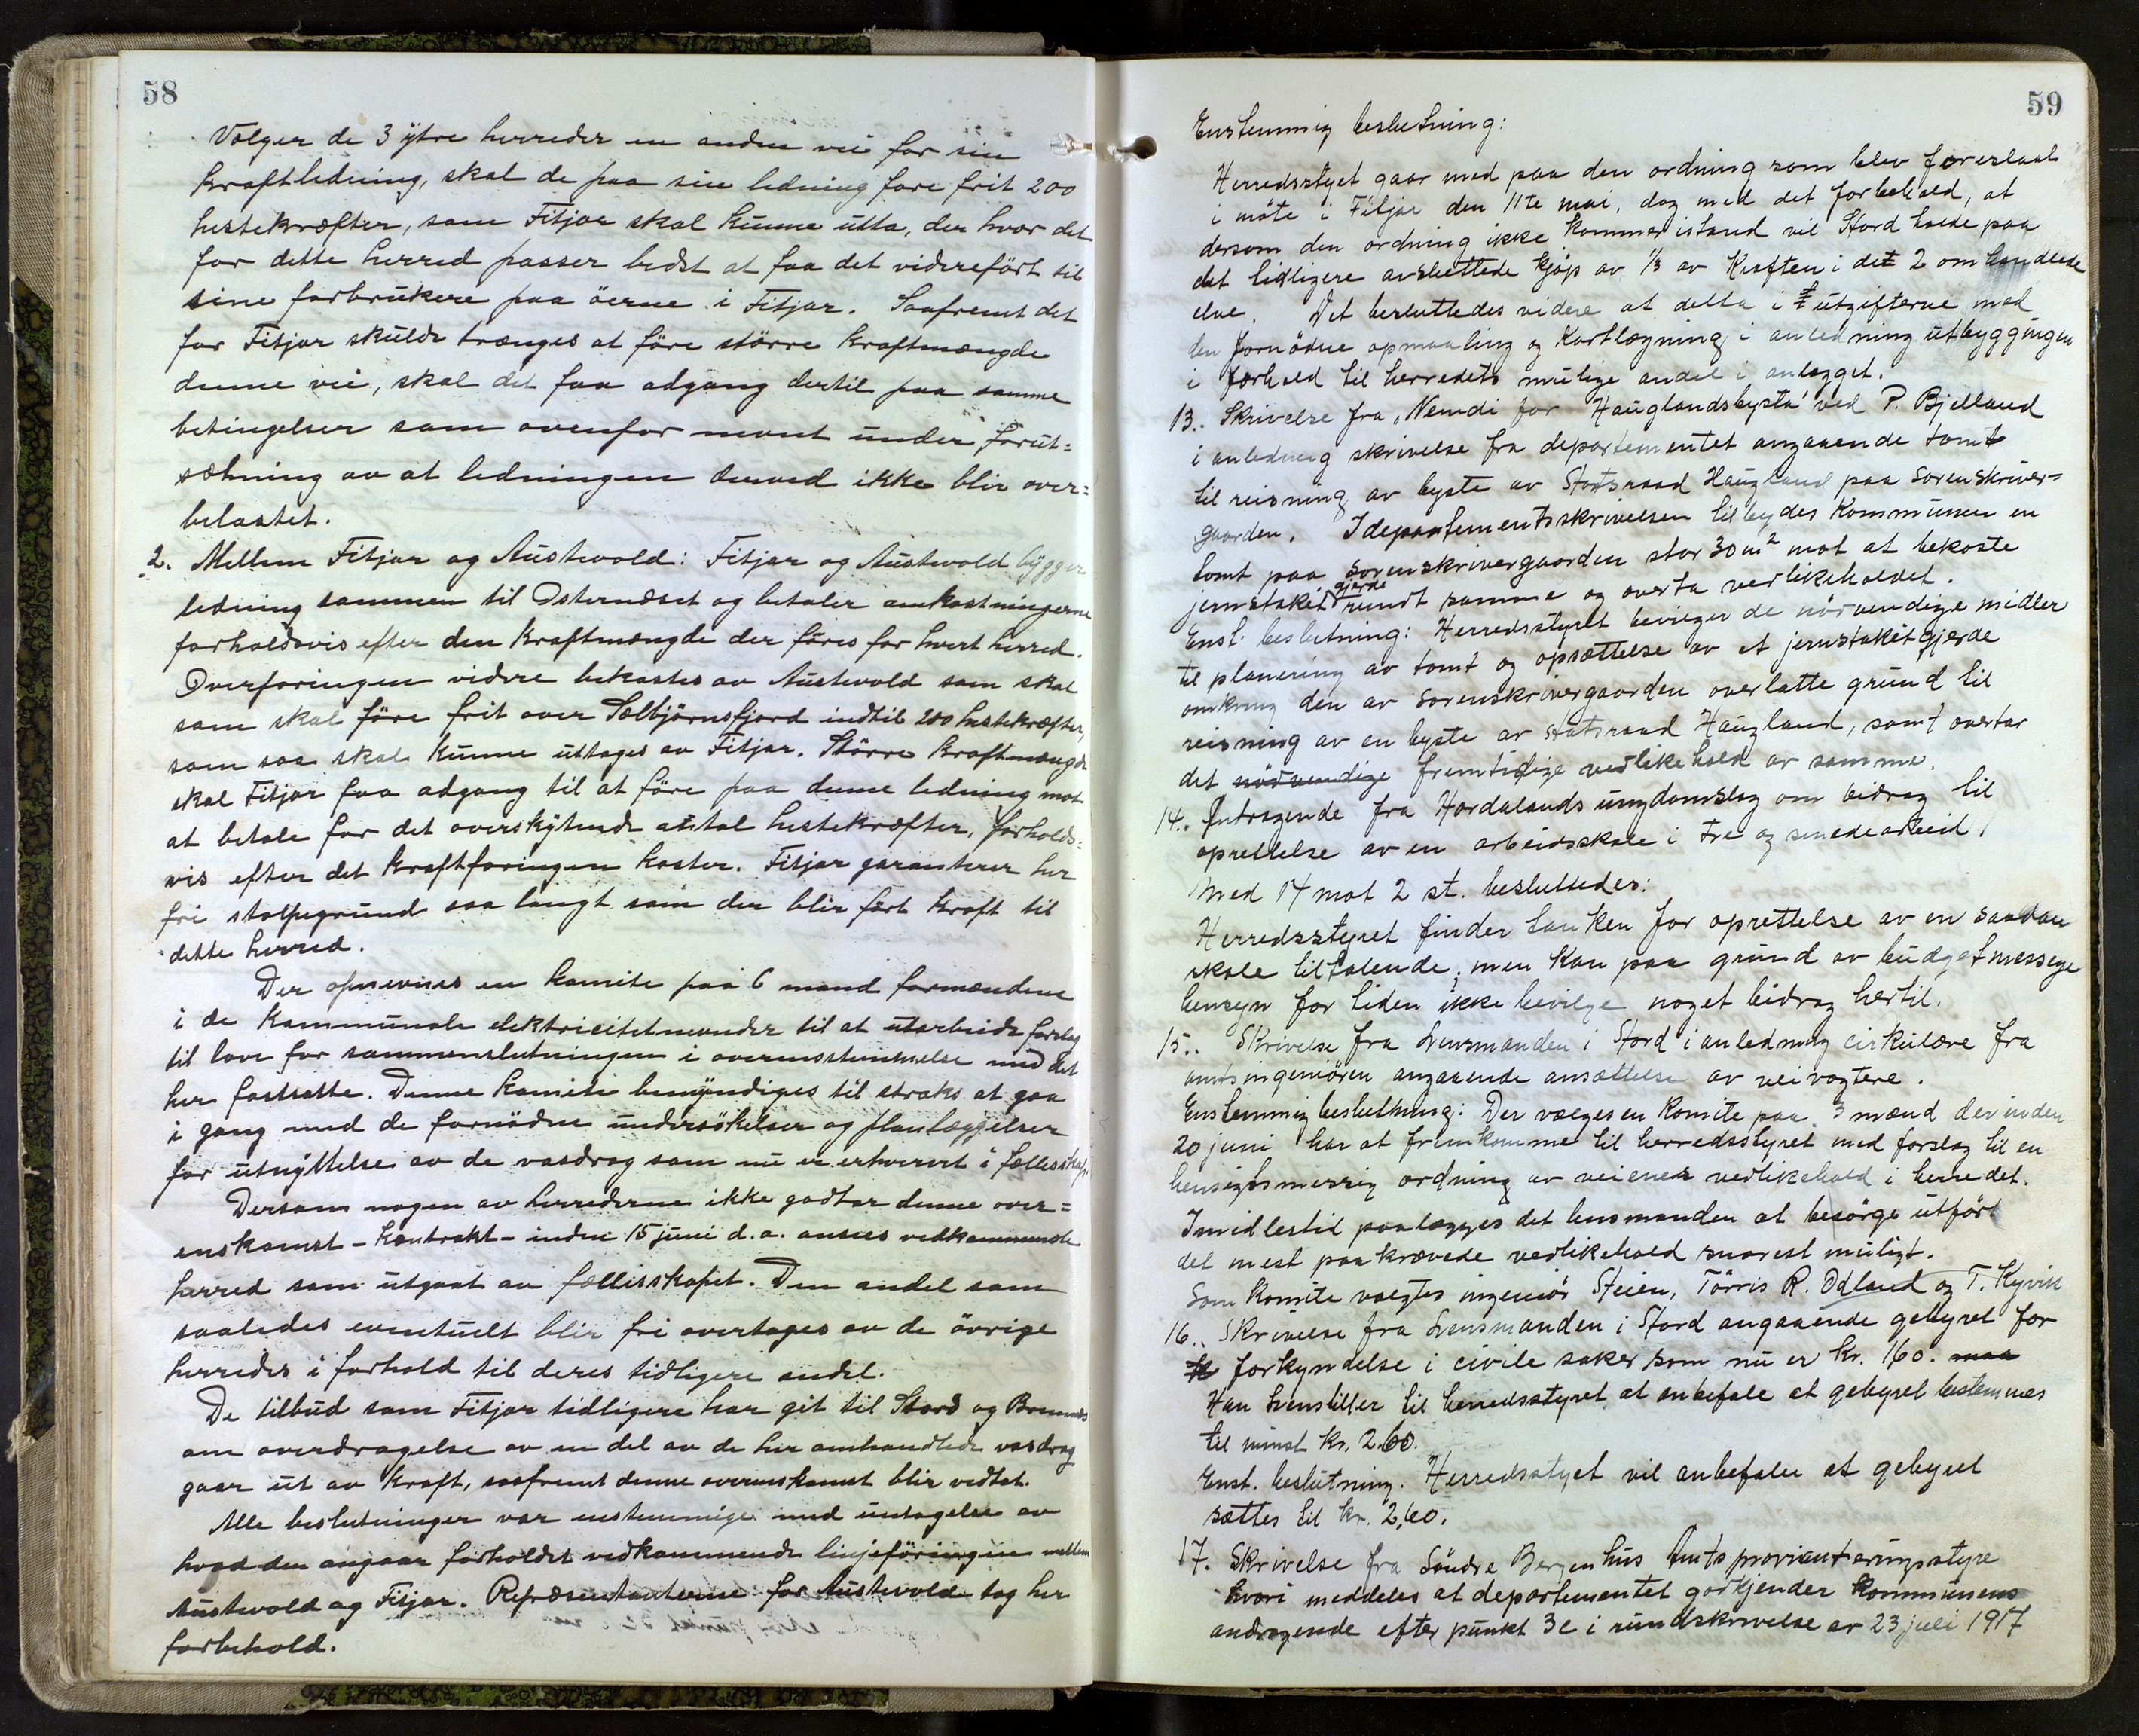 58
Vælger de 3 ytre herreder en anden vei for sin
kraftledning, skal de paa sin ledning føre frit 200
hestekræfter, som Fitjar skal kunne utta, der hvor det
for dette herred passer bedst at faa det videreført til
sine forbrukere paa øerne i Fitjar. Saafremt det
for Fitjar skulde trænges at føre større kraftmængde
denne vei, skal det faa adgang dertil paa samme
betingelser som ovenfor nævnt under forut=
sætning av at ledningen derved ikke blir over=
belastet.
2. Mellem Fitjar og Austevold: Fitjar og Austevold bygger
ledning sammen til Osternæset og betaler omkostningerne
forholdsvis efter den kraftmængde der føres for hvert herred.
Overføringen videre bekostes av Austevold som skal
som skal føre frit over Sælbjørnsfjord indtil 200 hestekræfter,
som saa skal kunne uttages av Fitjar. Større kraftmængde
skal Fitjar faa adgang til at føre paa denne ledning mot
at betale for det overskytende antal hestekræfter, forholds=
vis efter det kraftføringen koster. Fitjar garanterer her
fri stolpegrund saa langt som der blir ført kraft til
dette herred.
Der opnevnes en komite paa 6 mand formændene
i de kommunale elektricitetnevnder til at utarbeide forslag
til love for sammenslutningen i overensstemmelse med det
her fastsatte. Denne komite bemyndiges til straks at gaa
i gang med de fornødne undersøkelser og planlæggelser
for utnyttelse av de vasdrag som nu er erhvervet i fællesskap.
Dersom nogen av herrederne ikke godtar denne over=
enskomst - kontrakt - inden 15 juni d.a. ansees vedkommende
herred som utgaat av fællesskapet. Den andel som
saaledes eventuelt blir fri overtages av de øvrige
herreder i forhold til deres tidligere andel.
De tilbud som Fitjar tidligere har git til Stord og Bremnes
om overdragelse av en del av de her omhandlede vasdrag
gaar ut av kraft, saafremt denne overenskomst blir vedtat.
Alle beslutninger var enstemmige med undtagelse av
hvad der angaar forholdet vedkommende linjeføringen mellem
Austevold og Fitjar. Repræsentanterne for Austevold tog her
forbehold.
59
Enstemmig beslutning:
Herredsstyret gaar med paa den ordning som blev foreslaat
i møte i Fitjar den 11te mai, dog med det forbehold, at
dersom den ordning ikke kommer istand vil Stord holde paa
det tidligere avsluttede kjøp av 1/3 av Kraften i det 2 omhandlede
elve. Det besluttedes videre at delta i utgifterne med
den fornødne opmaaling og Kartlægning i anledning utbyggingen
i forhold til herredets mulige andel i anlægget.
13. Skrivelse fra "Nemdi for Hauglandsbysta" ved P. Bjelland
i anledning skrivelse fra departementet angaaende tomt
til reisning av byste av Statsraad Haugland paa Sorenskriver=
gaarden. I departementsskrivelsen tilbydes Kommunen en
tomt paa sorenskrivergaarden stor 30 m² mot at bekoste
jernstaket gjærde rundt samme og overta vedlikeholdet.
Enst. beslutning: Herredsstyret bevilger de nødvendige midler
til planering av tomt og opsættelse av et jernstaketgjerde
omkring den av Sorenskrivergaarden overlatte grund til
reisning av en byste av statsraad Haugland, samt overtar
det nødvendige fremtidige vedlikehold av samme.
14. Andragende fra Hordalands ungdomslag om bidrag til
oprettelse av en arbeidsskole i træ og smedearbeid.
Med 14 mot 2 st. besluttedes:
Herredsstyret finder tanken for oprettelse av en saadan
skole tiltalende, men kan paa grund av budgetmæssige
hensyn for tiden ikke bevilge noget bidrag hertil.
15. Skrivelse fra Lensmanden i Stord i anledning cirkulære fra
amtsingeniøren angaaende ansættelse av veivogtere.
Enstemmig beslutning: Der vælges en Komite paa 3 mænd der inden
20 juni har at fremkomme til herredsstyret med forslag til en
hensigtsmessig ordning av veienes vedlikehold i herredet.
Imidlertid paalægges det lensmanden at besørge utført
det mest paakrævede vedlikehold snarest muligt.
Som Komite valgtes ingeniør Steien, Tørris R. Ødland og T. Kyvik
16. Skrivelse fra Lensmanden i Stord angaaende gebyret for
forkyndelse i civile saker som nu er kr. 1,60. maa
Han henstiller til herredsstyret at anbefale at gebyret bestemmes
til minst kr. 2.60.
Enst. beslutning. Herredsstyet vil anbefaler at gebyret
sættes til kr. 2,60.
17. Skrivelse fra Søndre Bergenhus Amts provianteringsstyre
hvori meddeles at departementet godkjender Kommunens
andragende efter punkt 3c i rundskrivelse av 23 juli 1917